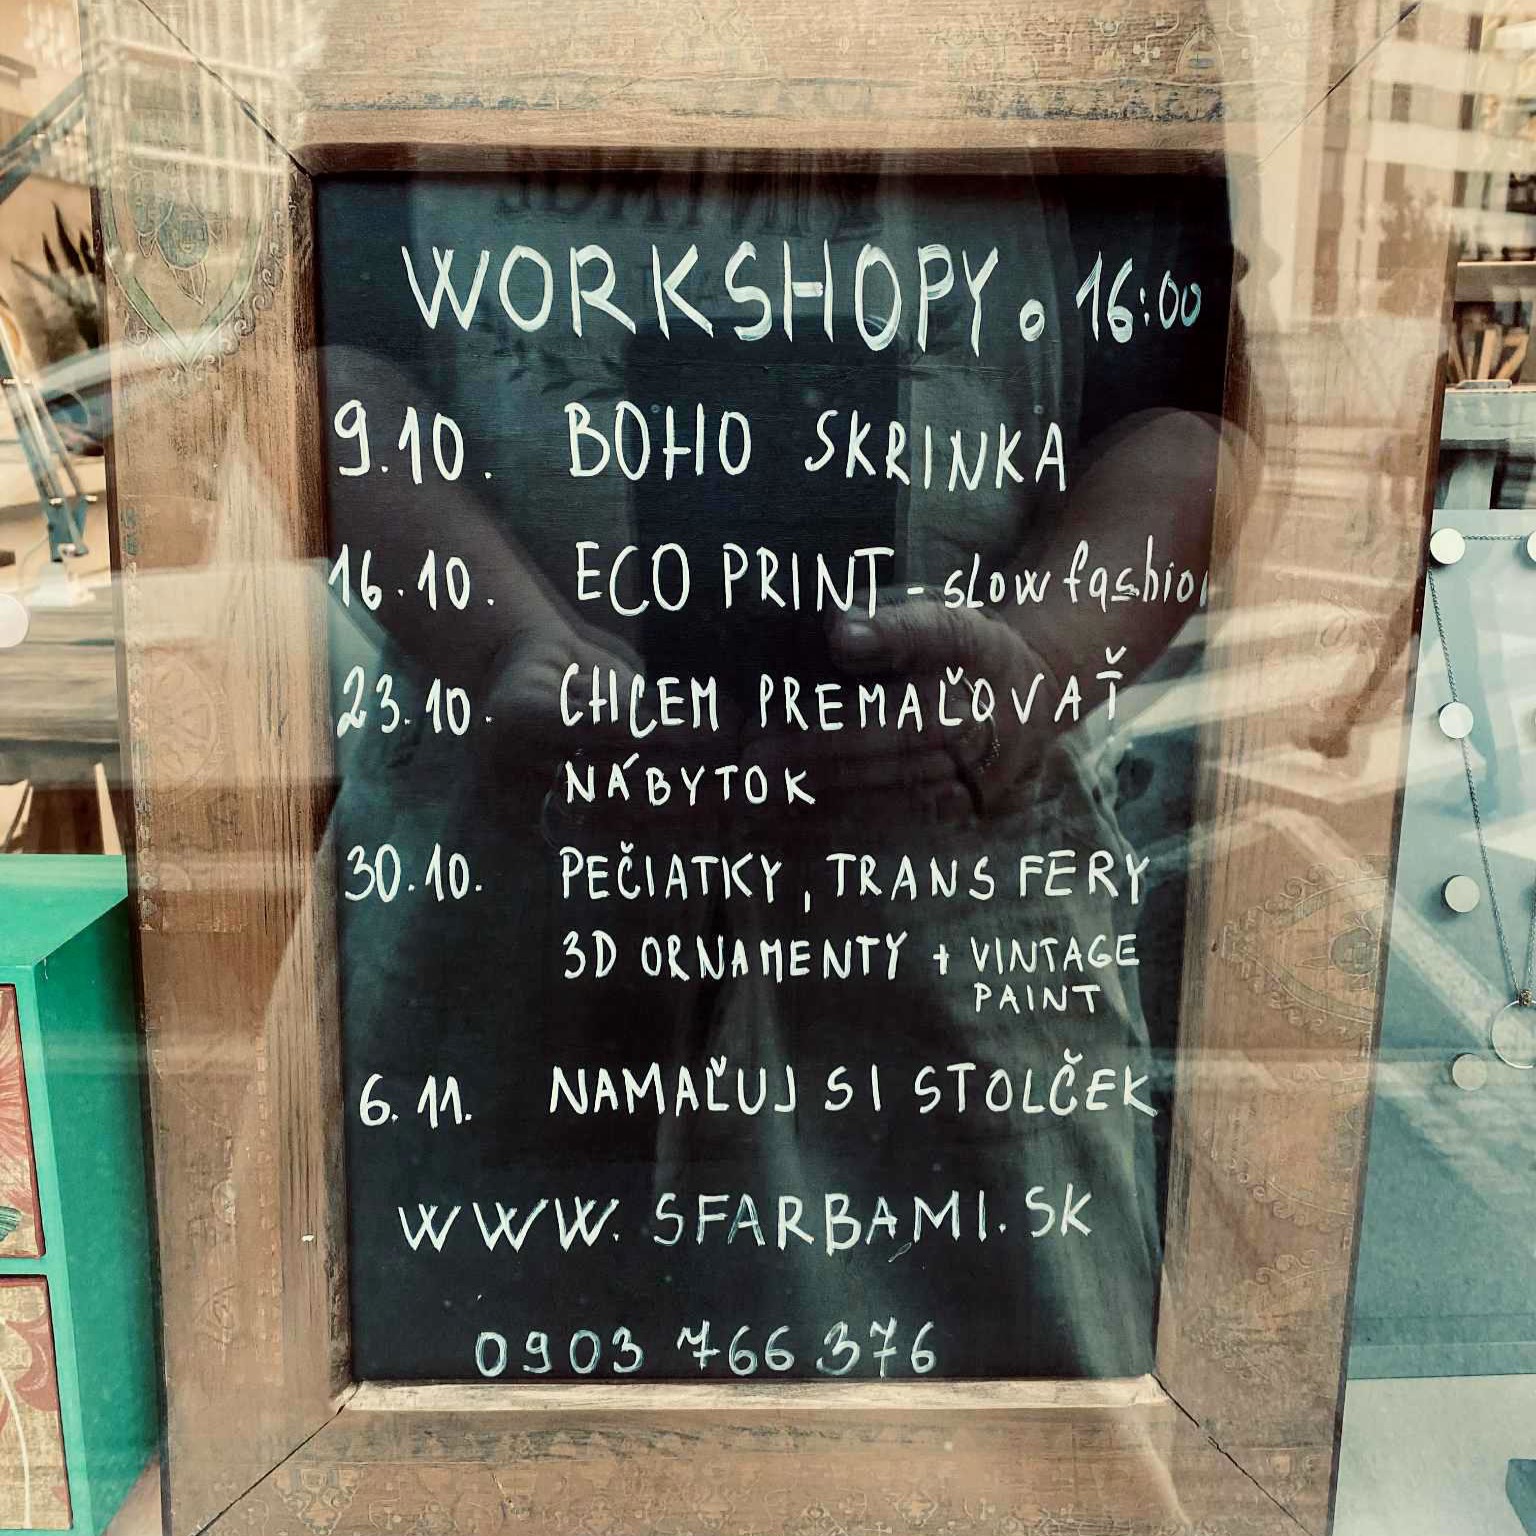 WORKSHOPY. 16:00
9.10. BOHO SKRINKA
16.10. ECO PRINT - slow fashion
23.10. CHCEM PREMAĽOVAŤ
NÁBYTOK
30.10. PEČIATKY, TRANSFERY
3D ORNAMENTY + VINTAGE
PAINT
6.11. NAMAĽUJ SI STOLČEK
WWW.SFARBAMI.SK
0903 766 376